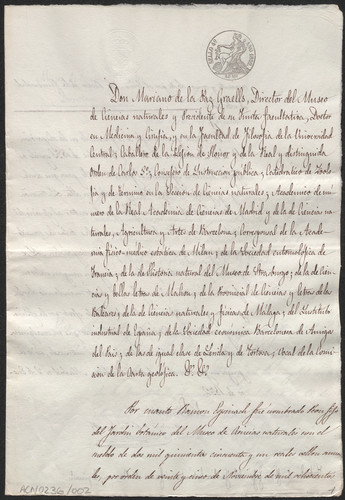 Don Mariano de la Paz Graells, Director del Museo
de Ciencias naturales y Presidente de su Junta facultativa, Doctor
en Medicina y Cirujia, y en la facultad de Filosofia de la Universidad
Central, Caballero de la Legion de Honor y de la Real y distinguida
Orden de Carlos 3º, Consejero de Instruccion publica, Catedratico de Zoolo
gia y de termino en la Seccion de Ciencias naturales, Academico de nu
mero de la Real Academia de Ciencias de Madrid y de la de Ciencias na
turales, Agricultura y Artes de Barcelona, Corresponsal de la Acade
mia fisico-medico estadistica de Milan, de la Sociedad entomologica de
Francia, de la de Historia natural del Museo de Strasburgo, de la de Cien
cias y bellas letras de Mahon, de la Provincial de Ciencias y letras de las
Baleares, de la de Ciencias naturales y fisicas de Malaga, del Instituto
industrial de España, de la Sociedad economica Barcelonesa de Amigos
del Pais, de las de igual clase de Lerida y de Tortosa, Vocal de la Comi
sion de la Carta geologica. &ª &ª
Por cuanto Ramon fué nombrado
del Jardin botanico del Museo de Ciencias naturales con el
sueldo de dos mil quinientos cincuenta y un reales vellon anua
les, por orden de veinte y cinco de Noviembre de mil ochocientos
ACN0236/002